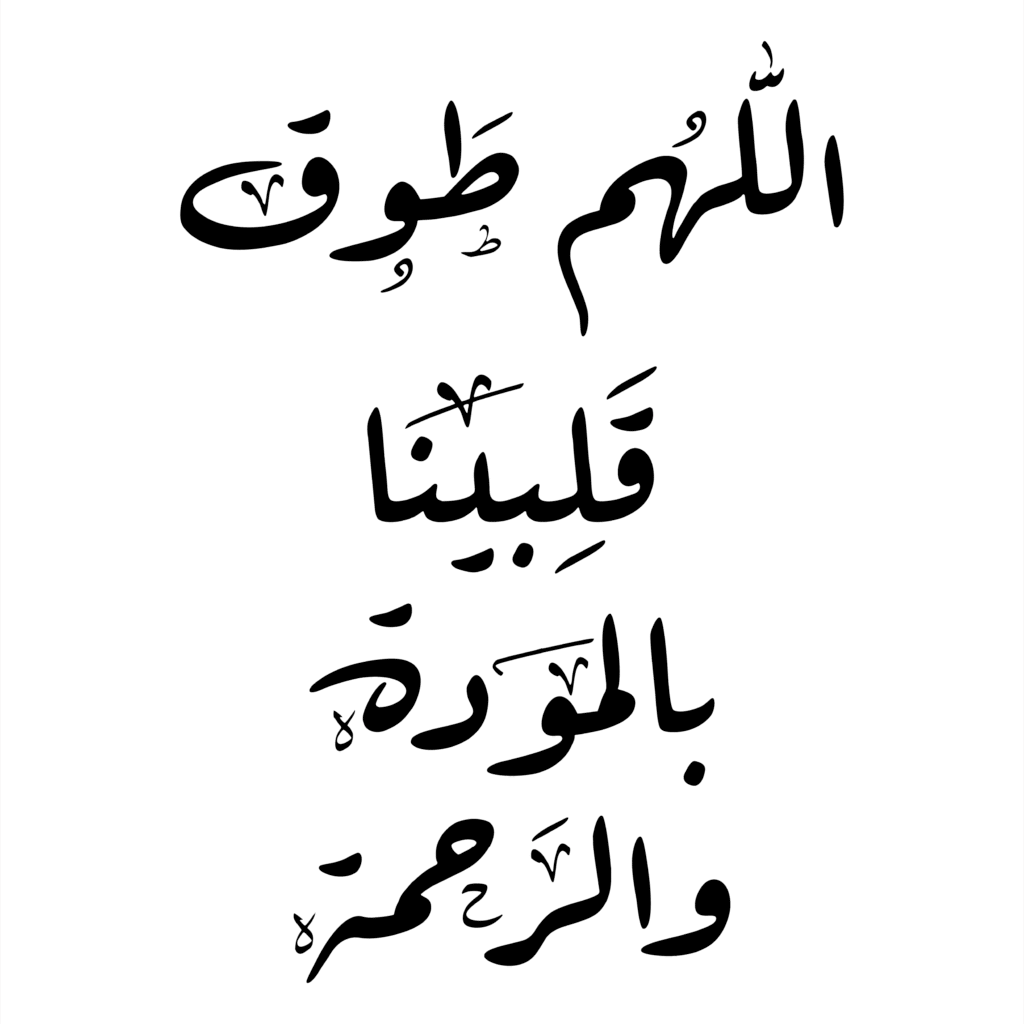 اللهم طوق
قلبينا
بالمودة
والرحمة